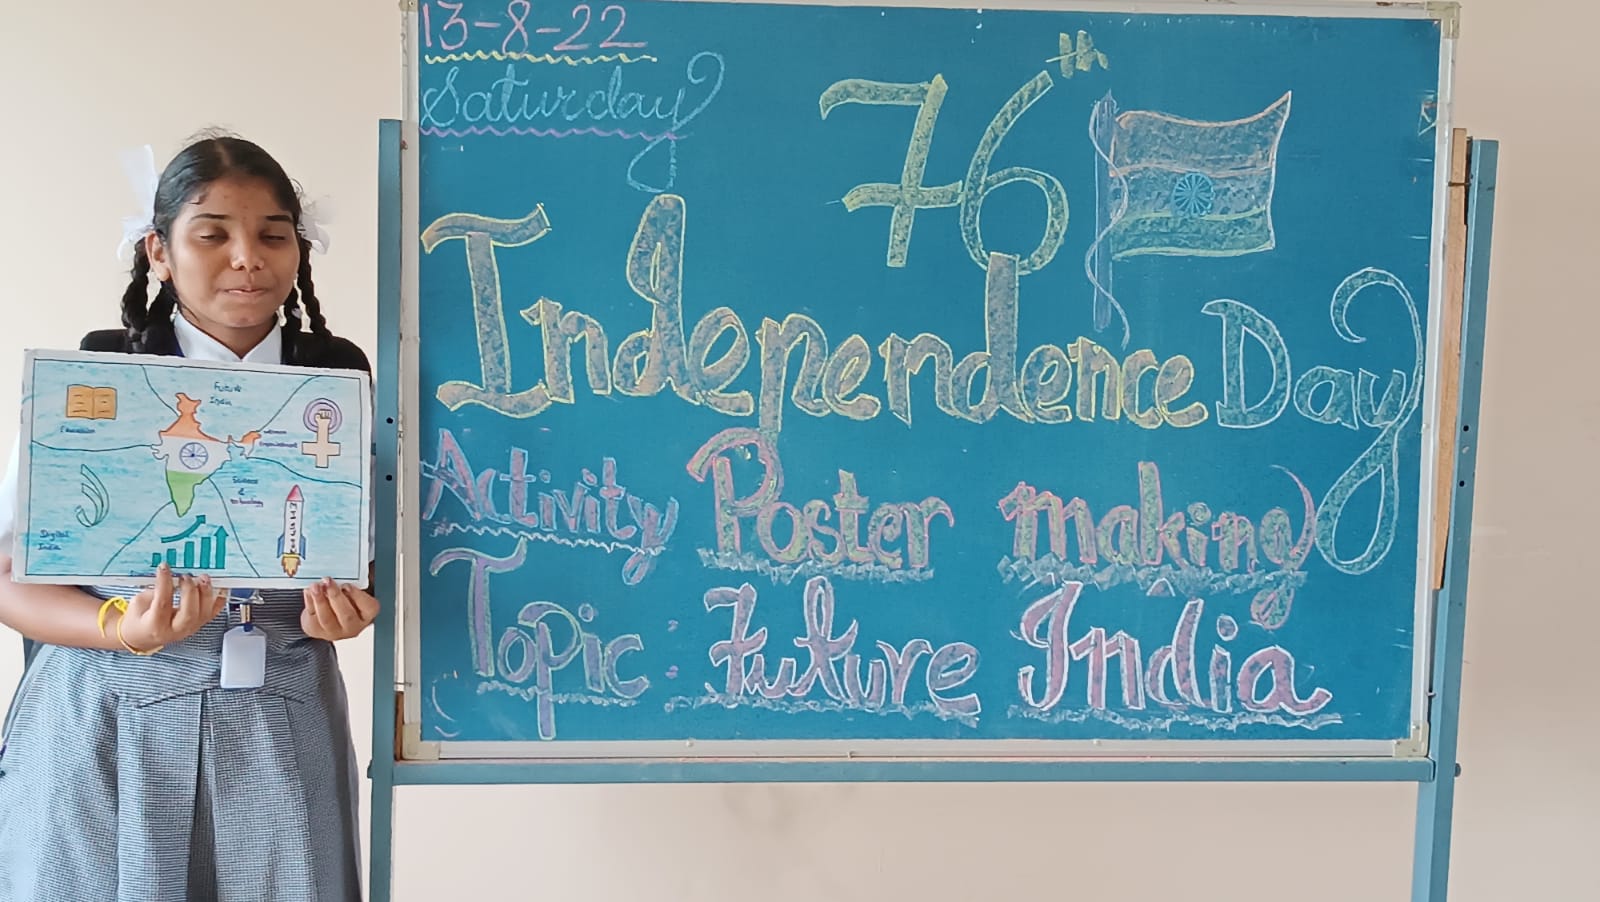 13-8-22
Saturday
76th
Independence Day
Activity Poster making
Topic : Future India
Future
India
Education
women
Empowerment
Science
&
technology
Digital
India